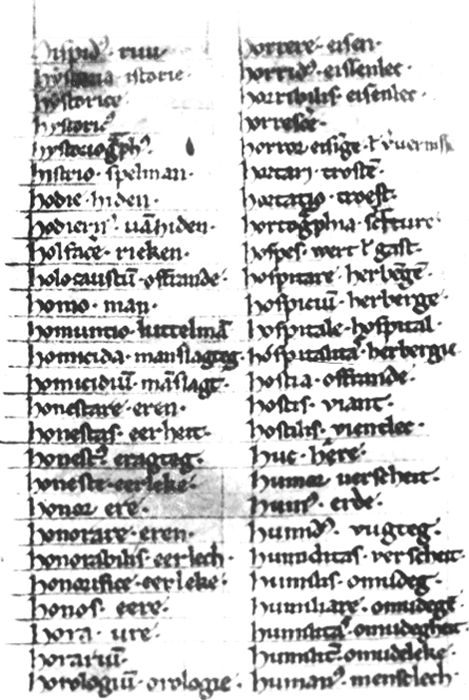 hispid' ruu
hystoria istorie
hystorice
hystoric'
hystoriogph'
histrio spelman
hodie hiden
hodiern' uāhiden
holfacē rieken
holocaustū offrande
homo man
homuntio luttelmā
homicida manslagteg
homicidiū māslagt
honestare eren
honestas eerheit
honest' eragteg
honeste eerleke
honor ere
honorare eren
honorabilis eerlech
honorifice eerleke
honos eere
hora ure
horariū
horologiū orologie
horrere eisen
horrid' eislenlec
horribilis eisenlec
horrescē
horror eisīge
hortari trostē
hortatio troest
hortogphia scture
hospes wert ł gast
hospitare herbēgē
hospiciū herberge
hospitale hospital
hospitalita herbergie
hostia offrande
hostis viant
hostilis vientlec
huc hēre
humor uerscheit
hum' erde
humid' vugteg
humiditas verscheit
humilis omudeg
humiliare omudegē
humilita omudegheit
humilit omudeleke
human' menschlech